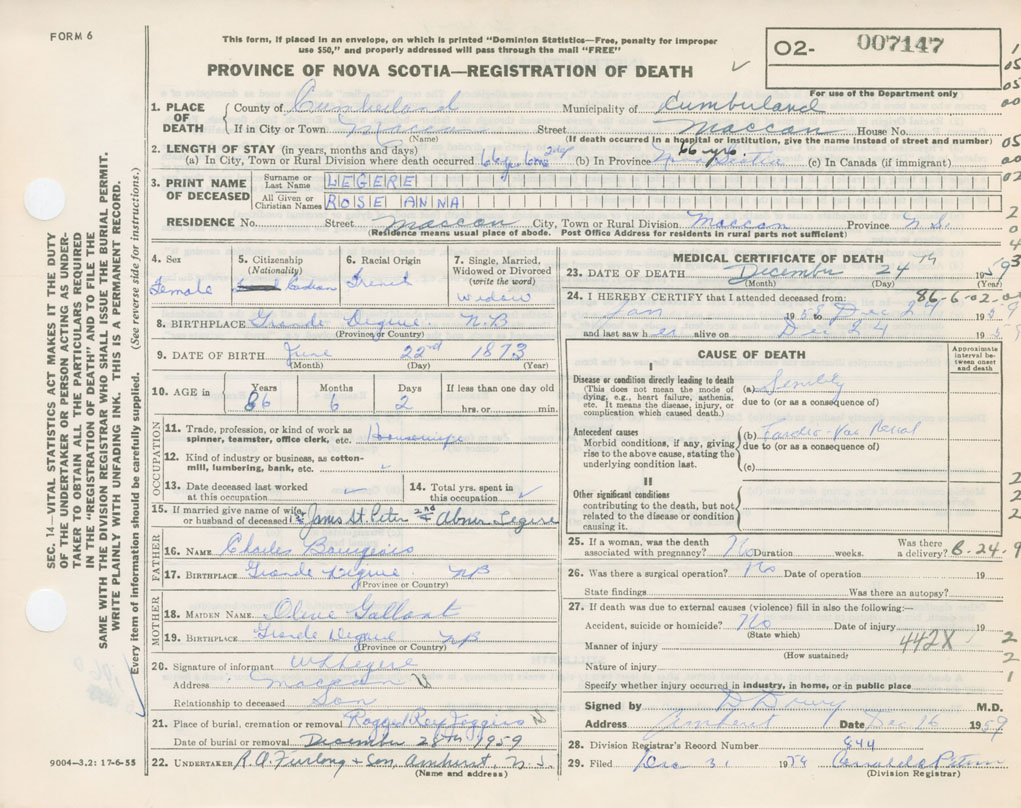 FORM 6
This form, if placed in an envelope, on which is printed "Dominion Statistics—Free, penalty for improper
use $50," and properly addressed will pass through the mail "FREE"
O2- 007147
PROVINCE OF NOVA SCOTIA—REGISTRATION OF DEATH
For use of the Department only
1. PLACE OF DEATH
County of Cumberland Municipality of Cumberland
If in City or Town Maccan Street Maccan House No.
(Name) (If death occurred in a hospital or institution, give the name instead of street and number)
2. LENGTH OF STAY (in years, months and days)
(a) In City, Town or Rural Division where death occurred (b) In Province 66 yrs Scotia (c) In Canada (if immigrant)
3. PRINT NAME OF DECEASED
Surname or Last Name LEGERE
All Given or Christian Names ROSE ANNA
RESIDENCE No. Street Maccan City, Town or Rural Division Maccan Province N.S.
(Residence means usual place of abode. Post Office Address for residents in rural parts not sufficient)
4. Sex Female
5. Citizenship (Nationality)
6. Racial Origin French
7. Single, Married, Widowed or Divorced (write the word) Widow
8. BIRTHPLACE Grande Degue N.B
(Province or Country)
9. DATE OF BIRTH June 22nd 1873
(Month) (Day) (Year)
10. AGE in Years 86 Months 6 Days 2 If less than one day old hrs. or min.
OCCUPATION
11. Trade, profession, or kind of work as spinner, teamster, office clerk, etc. Housewife
12. Kind of industry or business, as cotton-mill, lumbering, bank, etc.
13. Date deceased last worked at this occupation
14. Total yrs. spent in this occupation
15. If married give name of wife or husband of deceased James St. Peter 2nd Abner Legere
FATHER
16. NAME Charles Bourgeois
17. BIRTHPLACE Grande Degue NB
(Province or Country)
MOTHER
18. MAIDEN NAME Olive Gallant
19. BIRTHPLACE Grande Degue NB
(Province or Country)
20. Signature of informant
Address Maccan
Relationship to deceased Son
21. Place of burial, cremation or removal Ragged Reef Joggins
Date of burial or removal December 28th 1959
22. UNDERTAKER R.A. Furlong & Son, Amherst, N.S.
(Name and address)
9004—3.2: 17-6-55
MEDICAL CERTIFICATE OF DEATH
23. DATE OF DEATH December 24th 1959
(Month) (Day) (Year)
86-6-02-
24. I HEREBY CERTIFY that I attended deceased from:
Jan 195 to Dec 24 1959
and last saw her alive on Dec 24 1959
CAUSE OF DEATH
Approximate interval between onset and death
I
Disease or condition directly leading to death
(This does not mean the mode of dying, e.g., heart failure, asthenia, etc. It means the disease, injury, or complication which caused death.)
(a) Senility
due to (or as a consequence of)
Antecedent causes
Morbid conditions, if any, giving rise to the above cause, stating the underlying condition last.
(b) Cardio-Vas Renal
due to (or as a consequence of)
(c)
II
Other significant conditions
contributing to the death, but not related to the disease or condition causing it.
25. If a woman, was the death associated with pregnancy? No Duration weeks. Was there a delivery?
26. Was there a surgical operation? No Date of operation 19
State findings Was there an autopsy?
27. If death was due to external causes (violence) fill in also the following:—
Accident, suicide or homicide? No Date of injury 19
(State which)
Manner of injury 442X
(How sustained)
Nature of injury
Specify whether injury occurred in industry, in home, or in public place
Signed by M.D.
Address Amherst Date Dec 26 1959
28. Division Registrar's Record Number 844
29. Filed Dec 31 1959
(Division Registrar)
SEC. 14—VITAL STATISTICS ACT MAKES IT THE DUTY
OF THE UNDERTAKER OR PERSON ACTING AS UNDER-
TAKER TO OBTAIN ALL THE PARTICULARS REQUIRED
IN THE "REGISTRATION OF DEATH" AND TO FILE THE
SAME WITH THE DIVISION REGISTRAR WHO SHALL ISSUE THE BURIAL PERMIT.
WRITE PLAINLY WITH UNFADING INK. THIS IS A PERMANENT RECORD.
Every item of information should be carefully supplied. (See reverse side for instructions.)